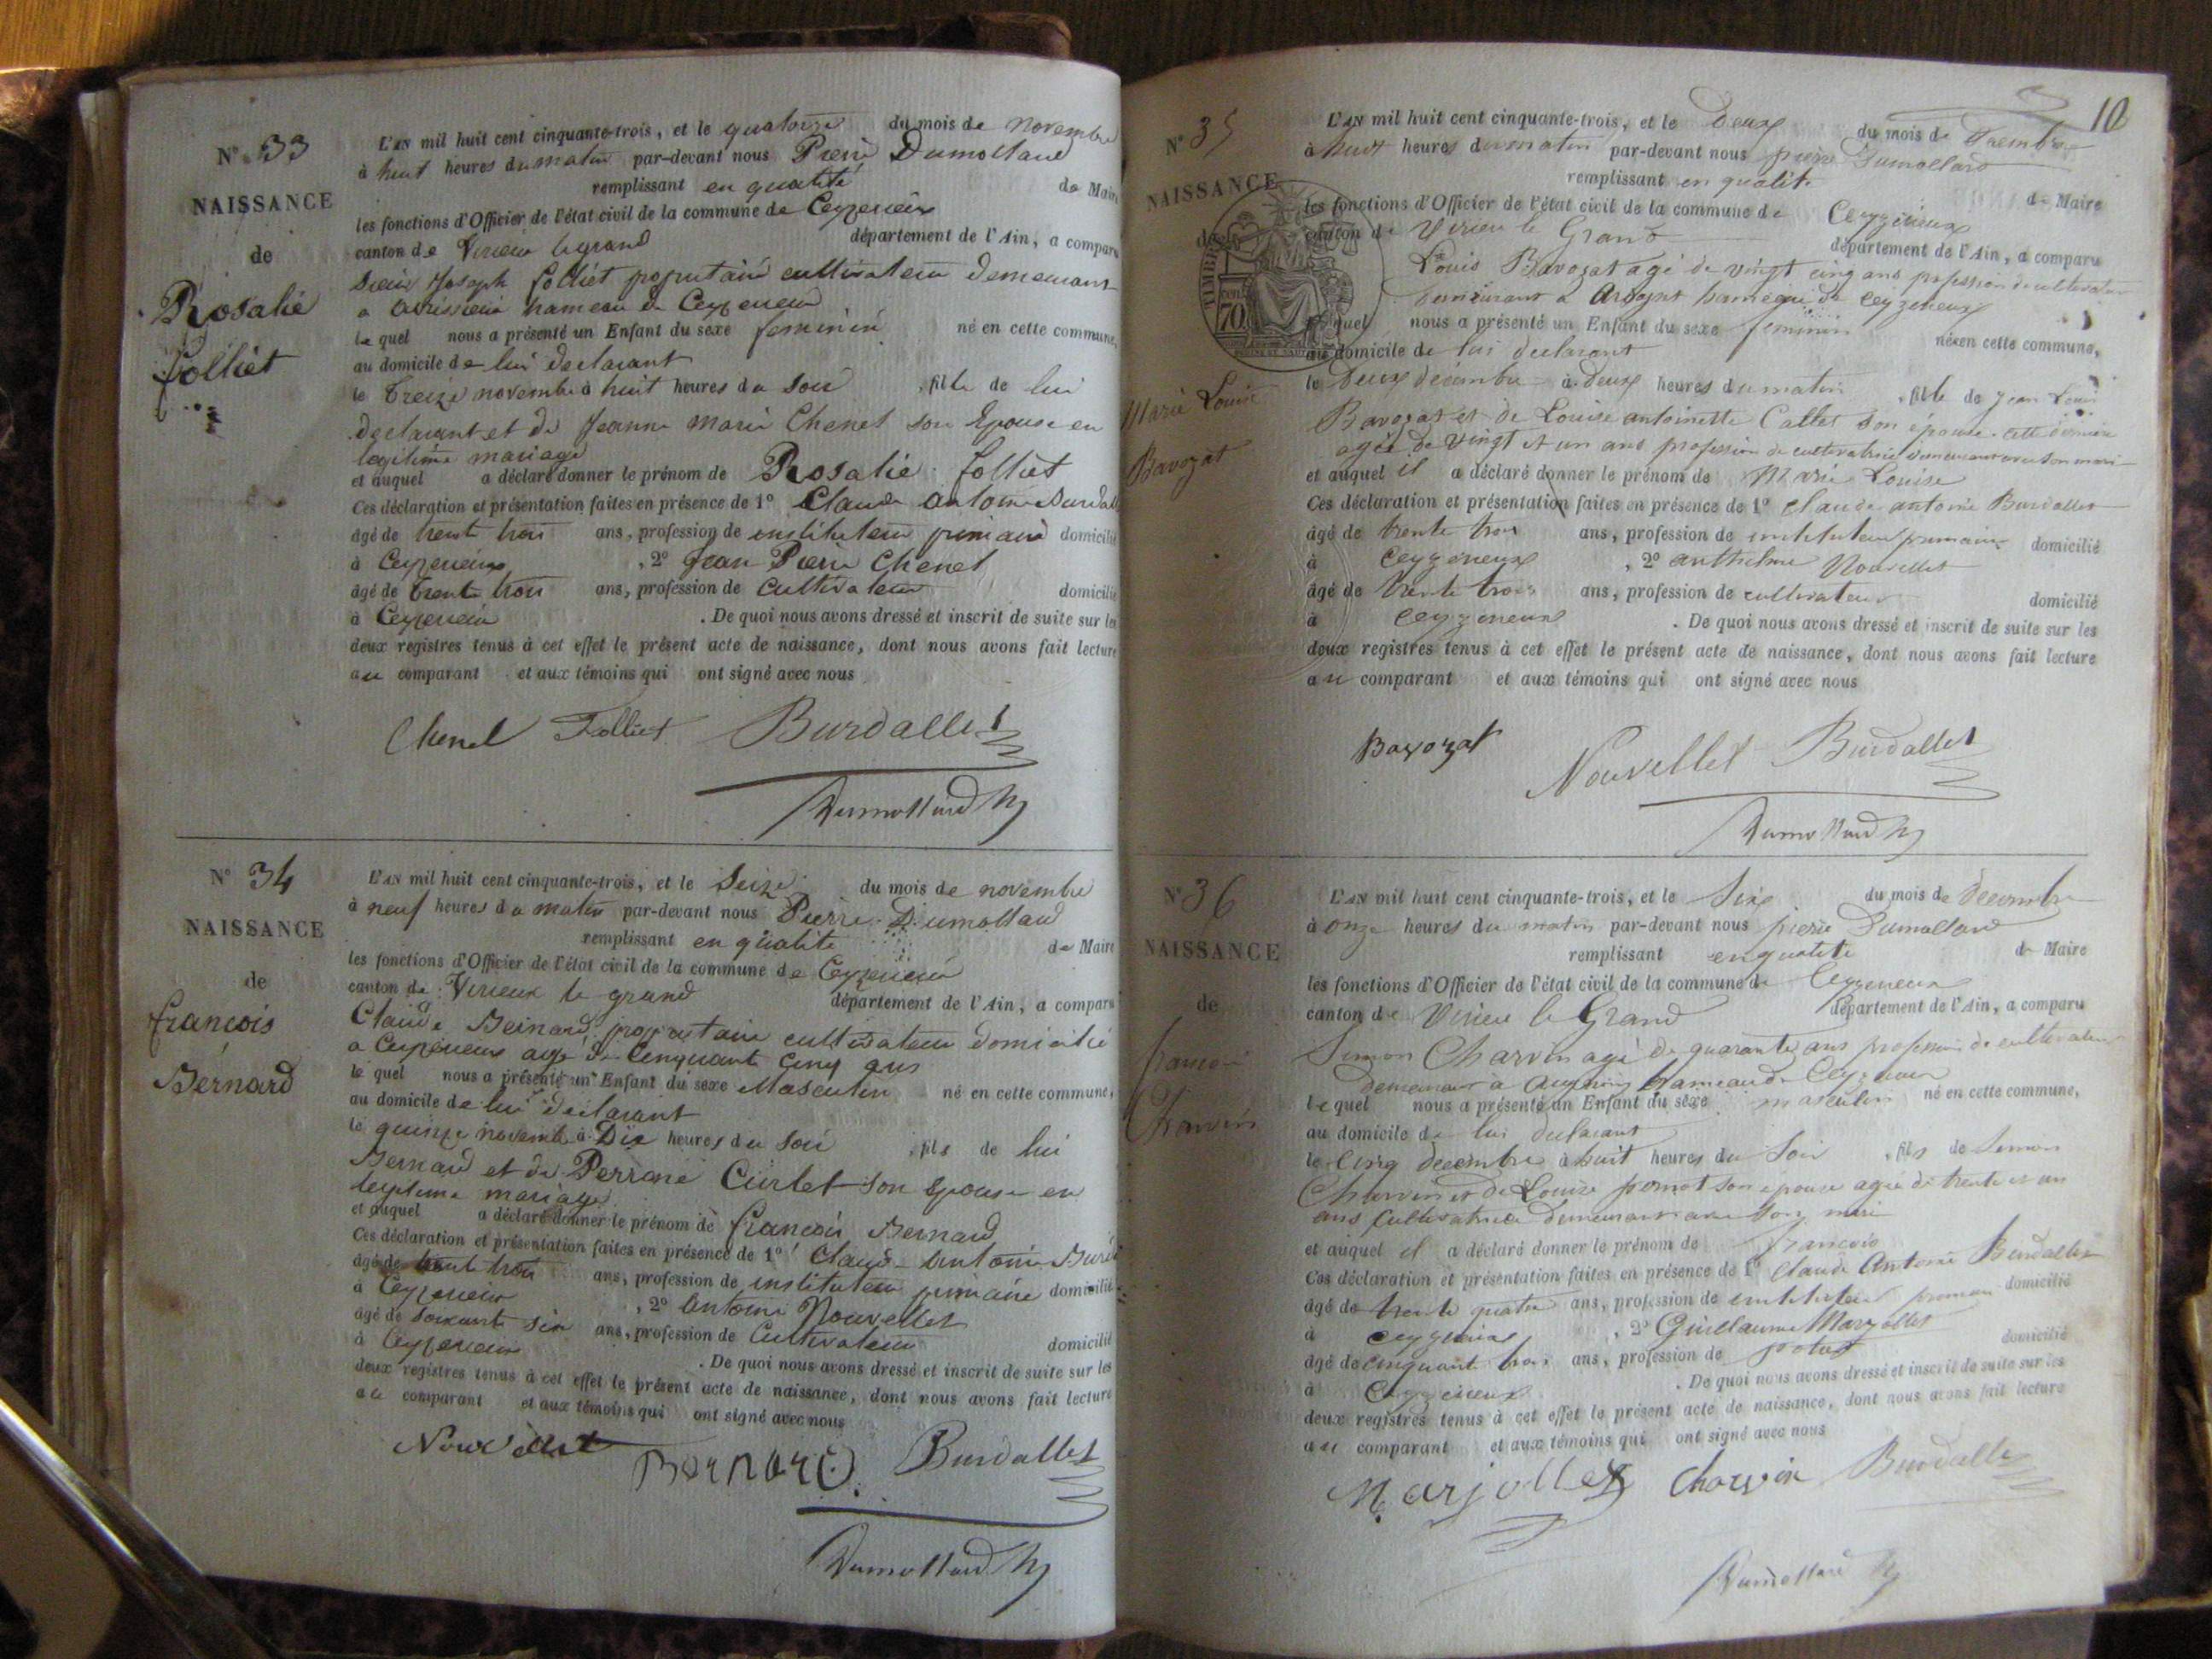 N° 33
NAISSANCE
de
Rosalie
folliet
L'AN mil huit cent cinquante-trois, et le quatorze du mois de novembre
à huit heures du matin par-devant nous Pierre Dumollard
remplissant en qualité de Maire
les fonctions d'Officier de l'état civil de la commune de Ceyzerieux
canton de Virieu le grand département de l'Ain, a comparu
Sieur Joseph folliet propriétaire cultivateur demeurant
a hameau de Ceyzerieu
le quel nous a présenté un Enfant du sexe feminin né en cette commune,
au domicile de lui declarant
le treize novembre à huit heures du soir , fille de lui
declarant et de Jeanne Marie Chenel son Epouse en
legitime mariage
et auquel a déclaré donner le prénom de Rosalie folliet
Ces déclaration et présentation faites en présence de 1° Claude antoine Burdallet
âgé de trente trois ans, profession de instituteur primaire domicilié
à Ceyzerieux , 2° Jean Pierre Chenel
âgé de trente trois ans, profession de cultivateur domicilié
à Ceyzerieu . De quoi nous avons dressé et inscrit de suite sur les
deux registres tenus à cet effet le présent acte de naissance, dont nous avons fait lecture
au comparant et aux témoins qui ont signé avec nous
Chenel Folliet Burdallet
Dumollard
N° 34
NAISSANCE
de
francois
Bernard
L'AN mil huit cent cinquante-trois, et le Seize du mois de novembre
à neuf heures du matin par-devant nous Pierre Dumollard
remplissant en qualité de Maire
les fonctions d'Officier de l'état civil de la commune de Ceyzerieu
canton de Virieux le grand département de l'Ain, a comparu
Claude Bernard propriétaire cultivateur domicilié
a Ceyzerieux agé de Cinquante cinq ans
le quel nous a présenté un Enfant du sexe Masculin né en cette commune,
au domicile de lui declarant
le quinze novembre à Dix heures du soir , fils de lui
Bernard et de Perrine Curlet son Epouse en
legitime mariage
et auquel a déclaré donner le prénom de francois Bernard
Ces déclaration et présentation faites en présence de 1° Claude antoine
âgé de trente trois ans, profession de instituteur primaire domicilié
à Ceyzerieux , 2° antoine Nouvellet
âgé de soixante six ans, profession de Cultivateur domicilié
à Ceyzerieux . De quoi nous avons dressé et inscrit de suite sur les
deux registres tenus à cet effet le présent acte de naissance, dont nous avons fait lecture
au comparant et aux témoins qui ont signé avec nous
Nouvellet Bernard Burdallet
Dumollard
10
N° 35
NAISSANCE
de
Marie Louise
Bavozat
TIMBRE
70
L'AN mil huit cent cinquante-trois, et le Deux du mois de Decembre
à huit heures du matin par-devant nous pierre Dumollard
remplissant en qualité de Maire
les fonctions d'Officier de l'état civil de la commune de Ceyzerieux
canton de Virieu le Grand département de l'Ain, a comparu
Louis Bavozat agé de vingt cinq ans profession de cultivateur
demeurant à hameau de Ceyzerieux
lequel nous a présenté un Enfant du sexe feminin née en cette commune,
au domicile de lui declarant
le Deux décembre à deux heures du matin , fille de Jean Louis
Bavozat et de Louise antoinette Callet son épouse cette dernière
agée de vingt et un ans profession de cultivatrice demeurant avec son mari
et auquel il a déclaré donner le prénom de Marie Louise
Ces déclaration et présentation faites en présence de 1° Claude antoine Burdallet
âgé de trente trois ans, profession de instituteur primaire domicilié
à Ceyzerieux , 2° anthelme Nouvellet
âgé de trente trois ans, profession de cultivateur domicilié
à Ceyzerieux . De quoi nous avons dressé et inscrit de suite sur les
deux registres tenus à cet effet le présent acte de naissance, dont nous avons fait lecture
au comparant et aux témoins qui ont signé avec nous
Bavozat Nouvellet Burdallet
Dumollard
N° 36
NAISSANCE
de
francois
Charvin
L'AN mil huit cent cinquante-trois, et le Six du mois de decembre
à onze heures du matin par-devant nous pierre Dumollard
remplissant en qualité de Maire
les fonctions d'Officier de l'état civil de la commune de Ceyzerieux
canton de Virieu le Grand département de l'Ain, a comparu
Simon Charvin agé de quarante ans profession de cultivateur
demeurant à hameau de Ceyzerieux
lequel nous a présenté un Enfant du sexe masculin né en cette commune,
au domicile de lui declarant
le Cinq decembre à huit heures du Soir , fils de Simon
Charvin et de Louise son epouse agée de trente et un
ans Cultivatrice demeurant avec son mari
et auquel il a déclaré donner le prénom de francois
Ces déclaration et présentation faites en présence de 1° Claude Antoine Burdallet
âgé de trente quatre ans, profession de instituteur primaire domicilié
à Ceyzerieux , 2° Guillaume Marjollet
âgé de cinquante trois ans, profession de domicilié
à Ceyzerieux . De quoi nous avons dressé et inscrit de suite sur les
deux registres tenus à cet effet le présent acte de naissance, dont nous avons fait lecture
au comparant et aux témoins qui ont signé avec nous
Marjollet Charvin Burdallet
Dumollard